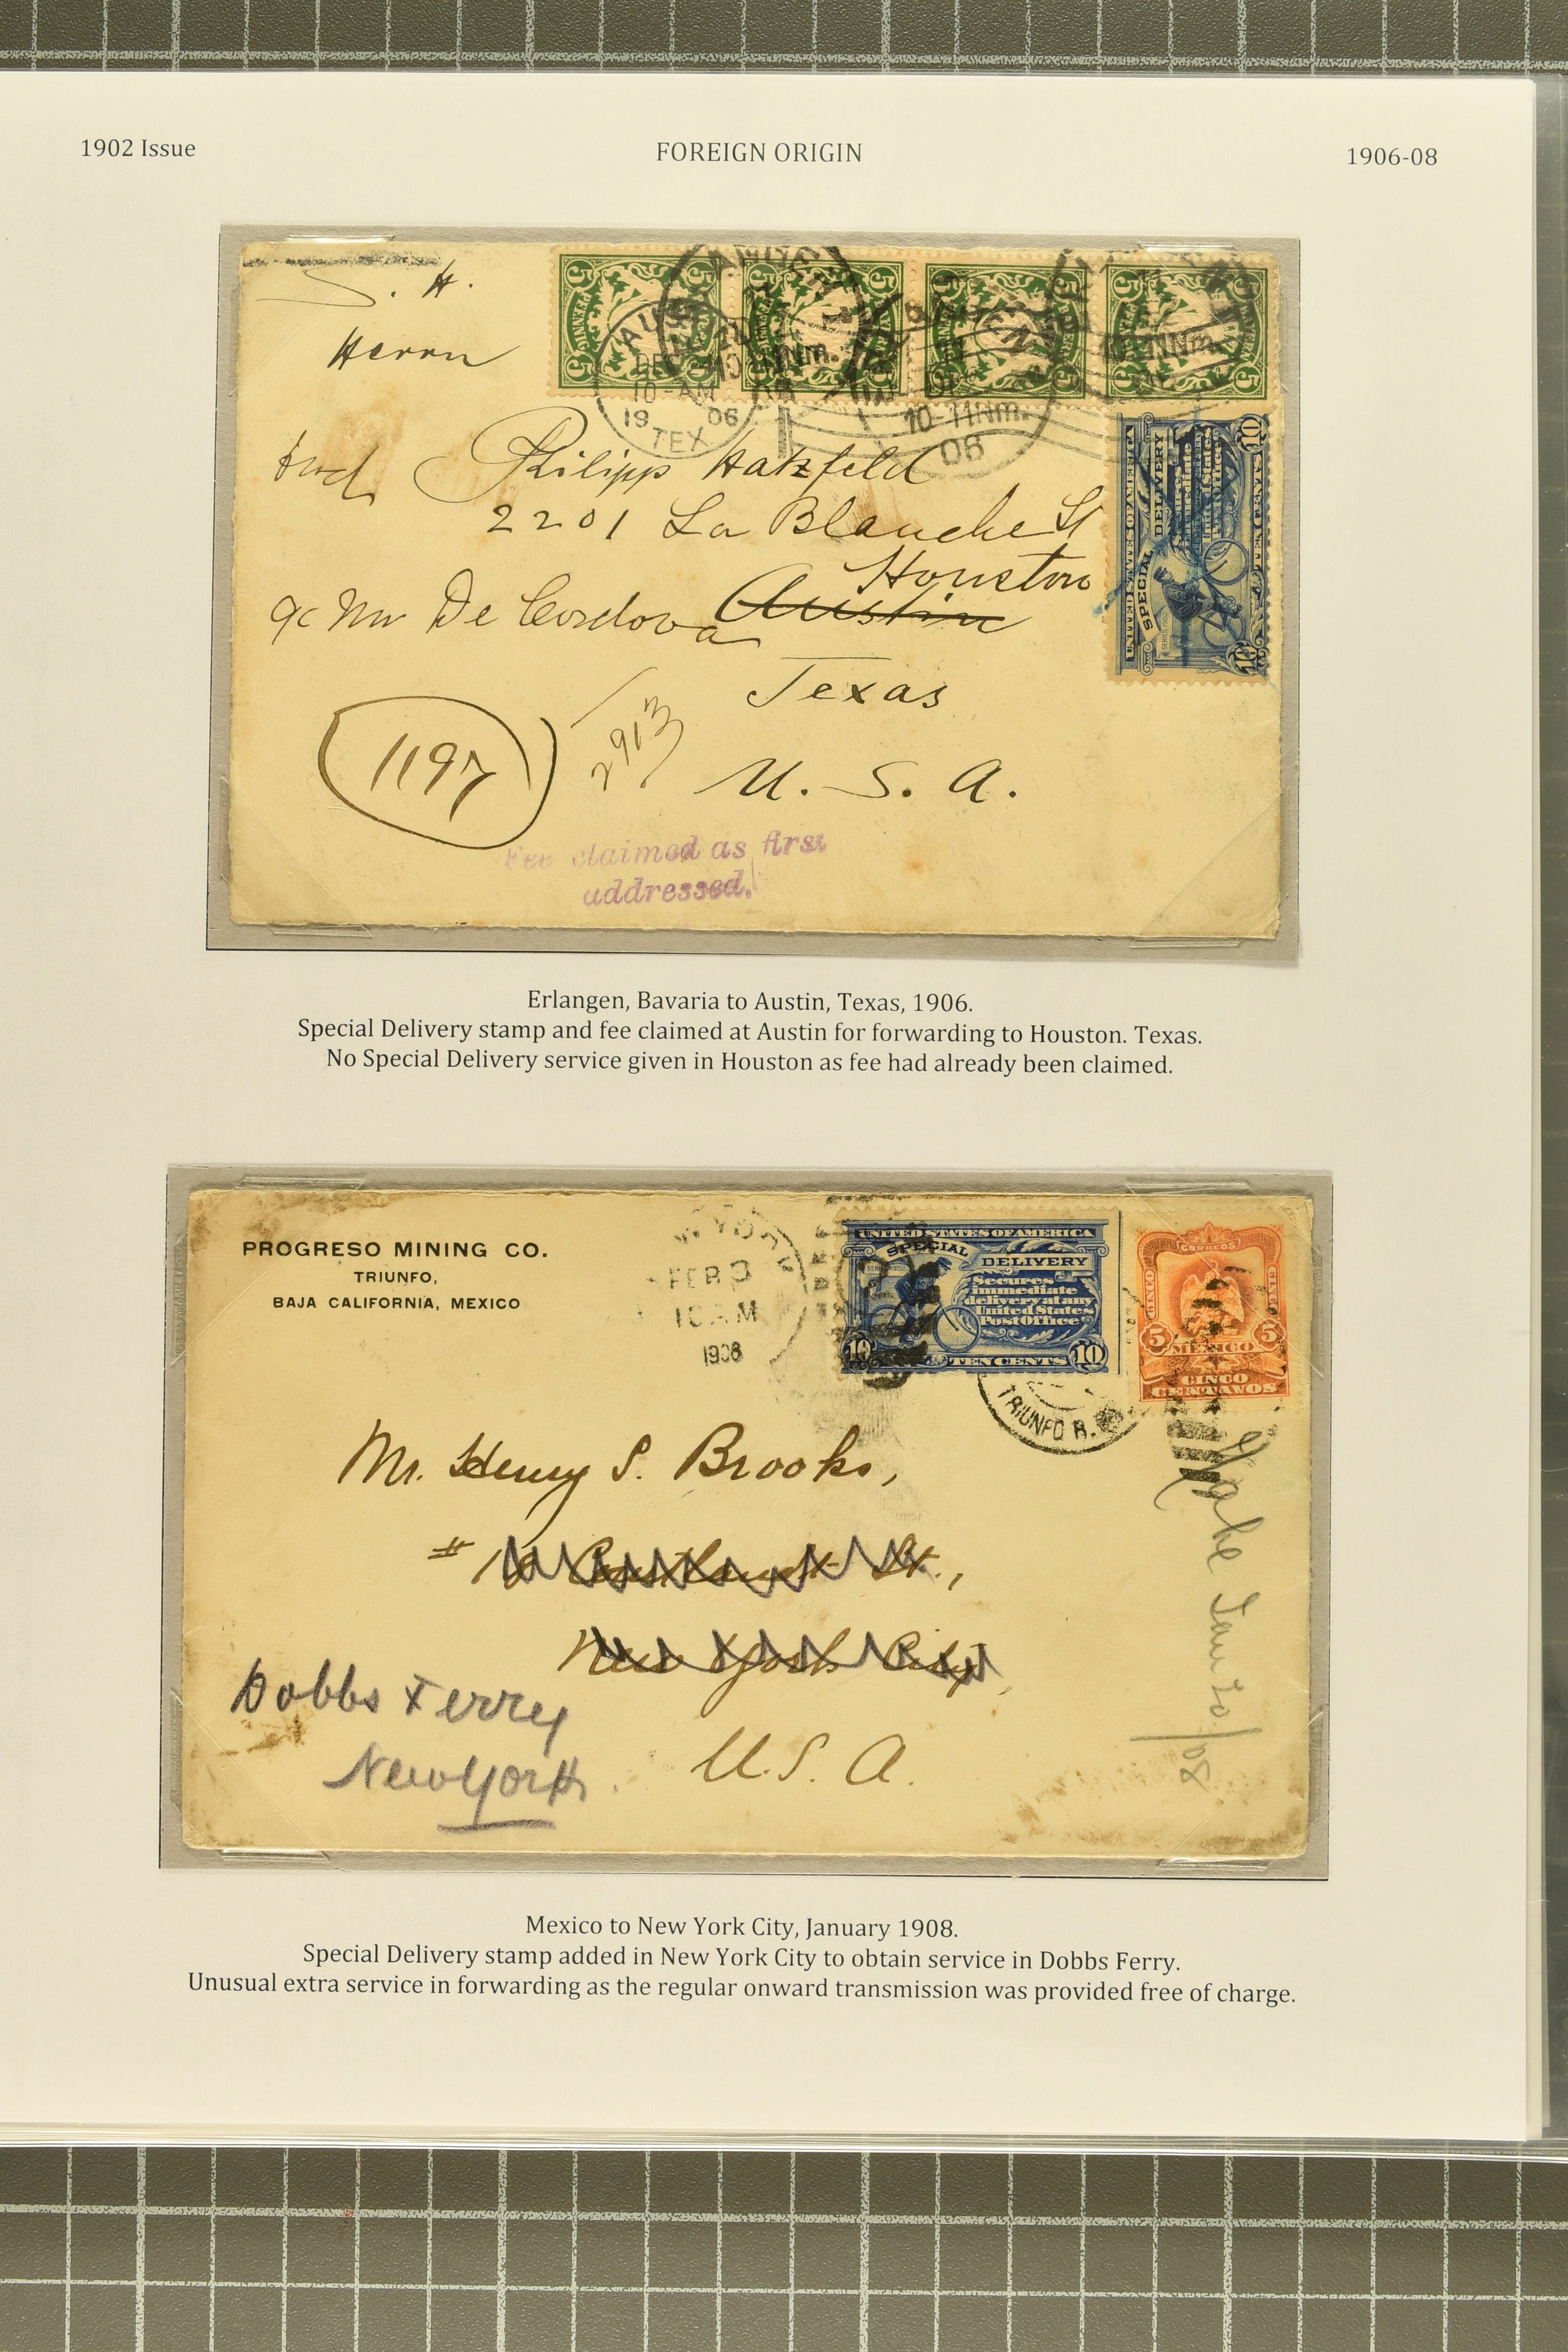 1902 Issue
FOREIGN ORIGIN
1906-08
S. H.
Herrn
Philipp Hatzfeld
2201 La Blanche St
Houston
Austin
c/o Mr De Cordova
Texas
1197
2913
U. S. A.
Fee claimed as first
addressed.
AUSTIN
DEC
10-AM
19 06
TEX
10-11Nm.
06
UNITED STATES OF AMERICA
SPECIAL DELIVERY
Secures immediate delivery at any United States Post Office
TEN CENTS
10 10
Erlangen, Bavaria to Austin, Texas, 1906.
Special Delivery stamp and fee claimed at Austin for forwarding to Houston. Texas.
No Special Delivery service given in Houston as fee had already been claimed.
PROGRESO MINING CO.
TRIUNFO,
BAJA CALIFORNIA, MEXICO
W YORK
FEB 3
10 AM
1908
UNITED STATES OF AMERICA
SPECIAL DELIVERY
Secures
immediate
delivery at any
United States
Post Office
10 TEN CENTS 10
CORREOS
CINCO
5 5
MEXICO
CINCO
CENTAVOS
TRIUNFO B.
Mr. Henry S. Brooks,
# St.,
New York City,
Dobbs Ferry
New York.
U.S. A.
Mexico to New York City, January 1908.
Special Delivery stamp added in New York City to obtain service in Dobbs Ferry.
Unusual extra service in forwarding as the regular onward transmission was provided free of charge.